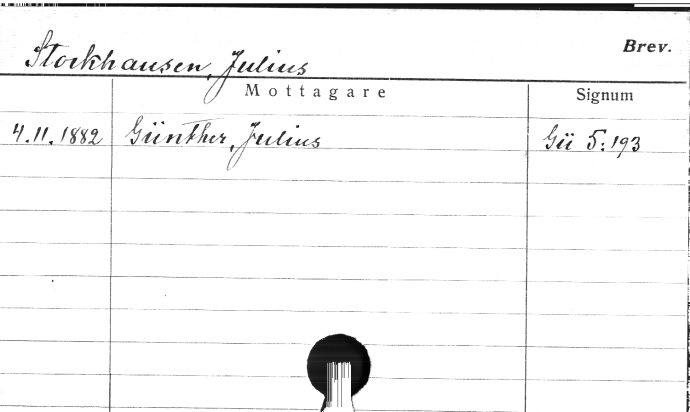 Stockhausen, Julius
Brev.
Mottagare
Signum
4.11.1882 Günther, Julius Gü 5:193